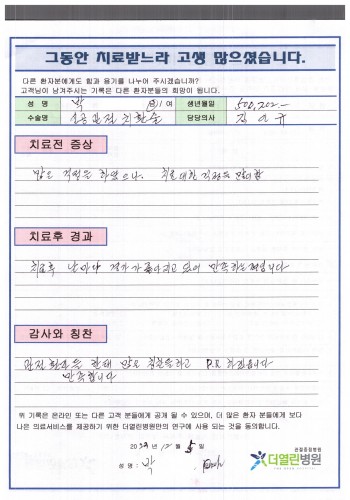 그동안 치료받느라 고생 많으셨습니다.
다른 환자분에게도 힘과 용기를 나누어 주시겠습니까?
고객님이 남겨주시는 기록은 다른 환자분들의 희망이 됩니다.
성 명 박 남 / 여 생년월일 500,202.-
수술명 인공관절치환술 담당의사 김
치료전 증상
많은 걱정을 하였으나. 치료 대한 걱정을
치료후 경과
치료후 날마다 경과가 좋아지고 있어 만족하는
감사와 칭찬
관절 많고 P.R 하겠습니다
만족합니다
위 기록은 온라인 또는 다른 고객 분들에게 공개 될 수 있으며, 더 많은 환자 분들에게 보다
나은 의료서비스를 제공하기 위한 더열린병원만의 연구에 사용 되는 것을 동의합니다.
년 12 월 5 일
성 명 : 박
관절중점병원
더열린병원